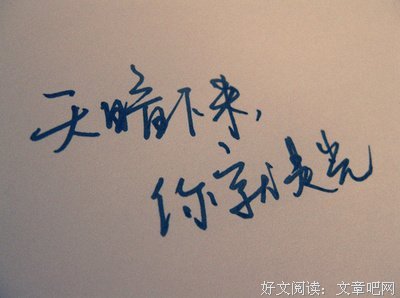 天暗下来，
你就是光
好文阅读：文章吧网